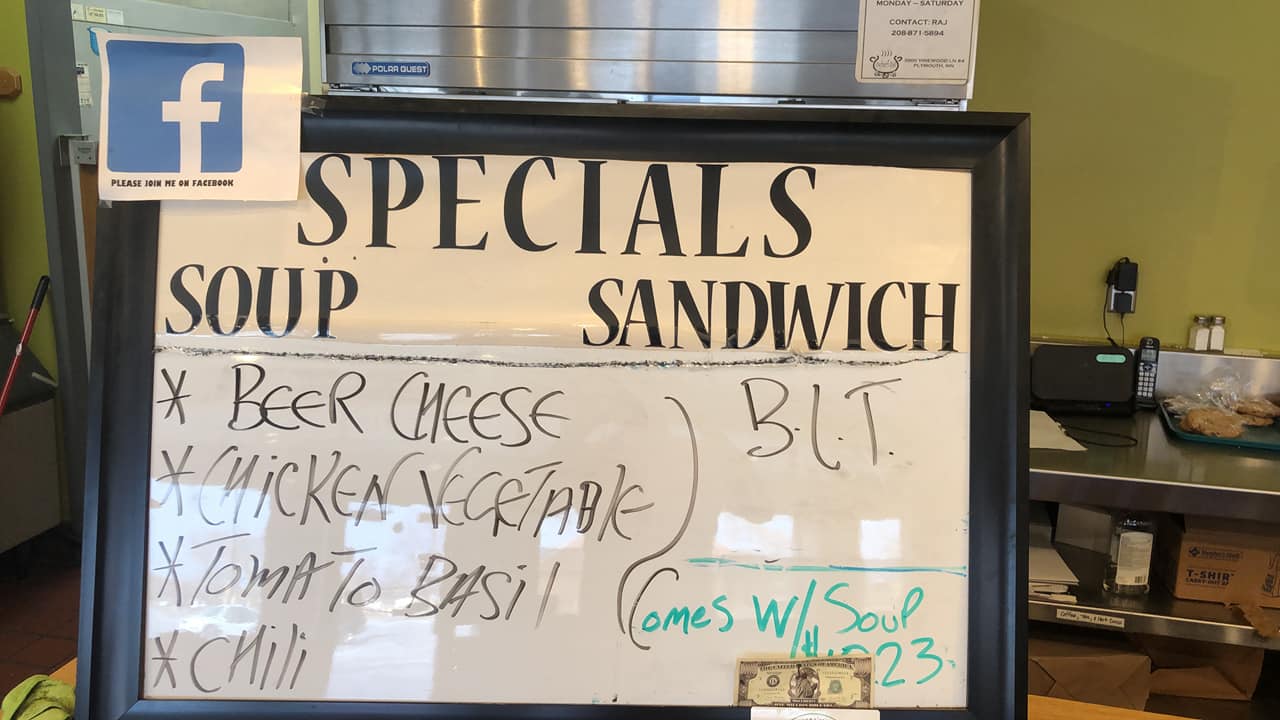 MONDAY – SATURDAY
CONTACT: RAJ
208-871-5894
3900 VINEWOOD LN #4
PLYMOUTH, MN
POLAR QUEST
f
PLEASE JOIN ME ON FACEBOOK
SPECIALS
SOUP SANDWICH
* BEER CHEESE
* CHICKEN VEGETABLE
* TOMATO BASIL
* CHILI
B.L.T.
COMES W/SOUP
23
T-SHIRT